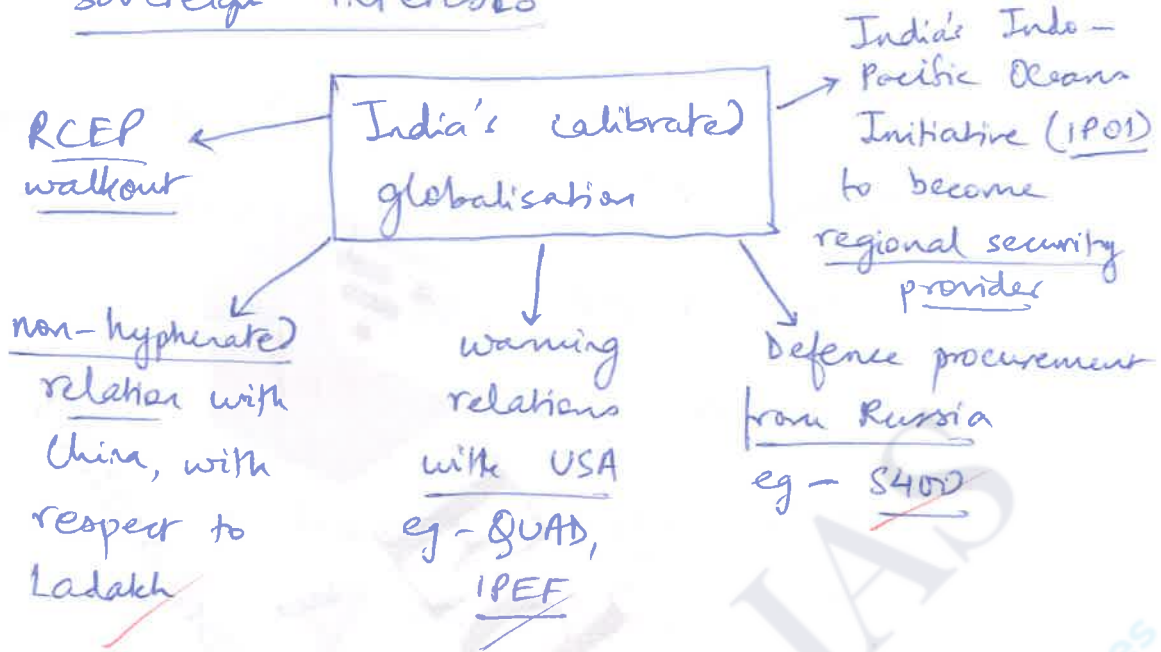 sovereign interests
India's calibrated
globalisation
RCEP
walkout
India's Indo-
Pacific Oceans
Initiative (IPOI)
to become
regional security
provider
non-hyphenated
relation with
China, with
respect to
Ladakh
warming
relations
with USA
eg - QUAD,
IPEF
Defence procurement
from Russia
eg - S400
IAS